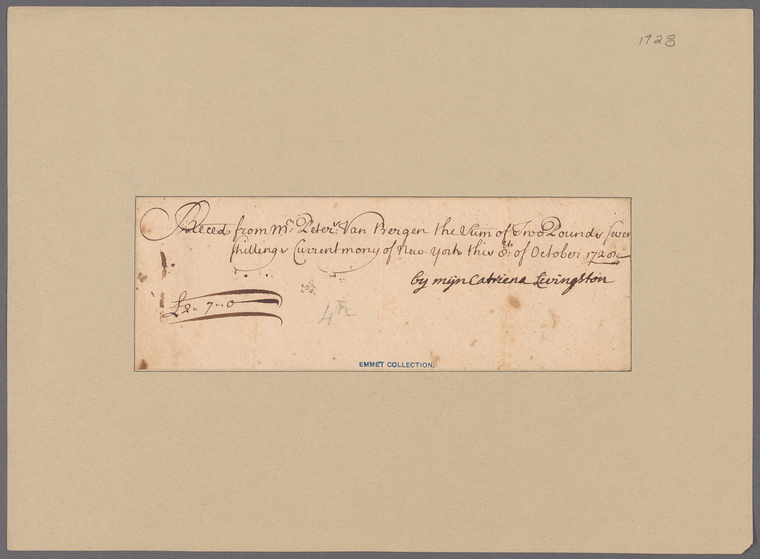 1728
Receed from Mr. Peter V. Van Bergen the Sum of Two Pounds seven
shillings Current mony of New York this 8th: of October 1728
by mijn Catriena Levingston
£2.. 7..0
4th
EMMET COLLECTION.